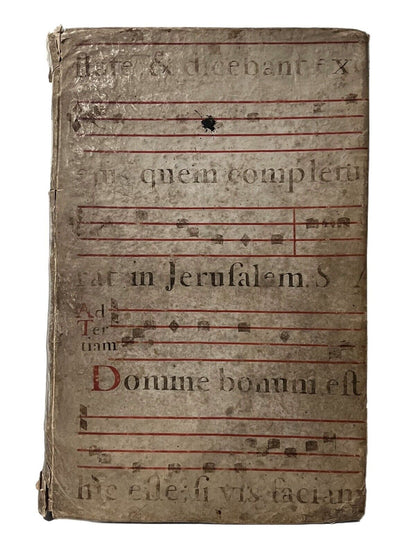 ſtate, & dicebant ex
ejus quem completu
rat in Jeruſalem. S A
Ad
Ter
tiam
Domine bonum eſt
hic eſſe; ſi vis faciam